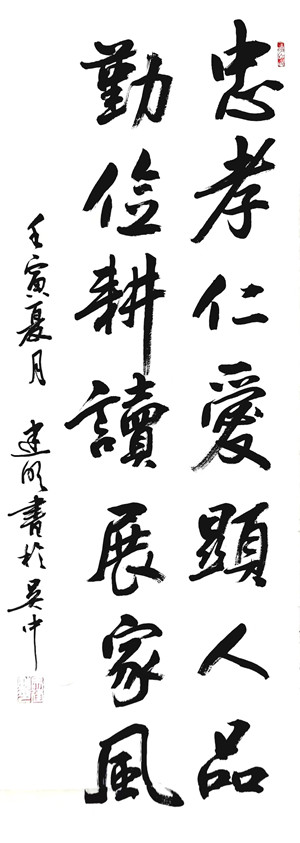 忠孝仁愛顯人品
勤俭耕讀展家風
壬寅夏月 建明書於吴中